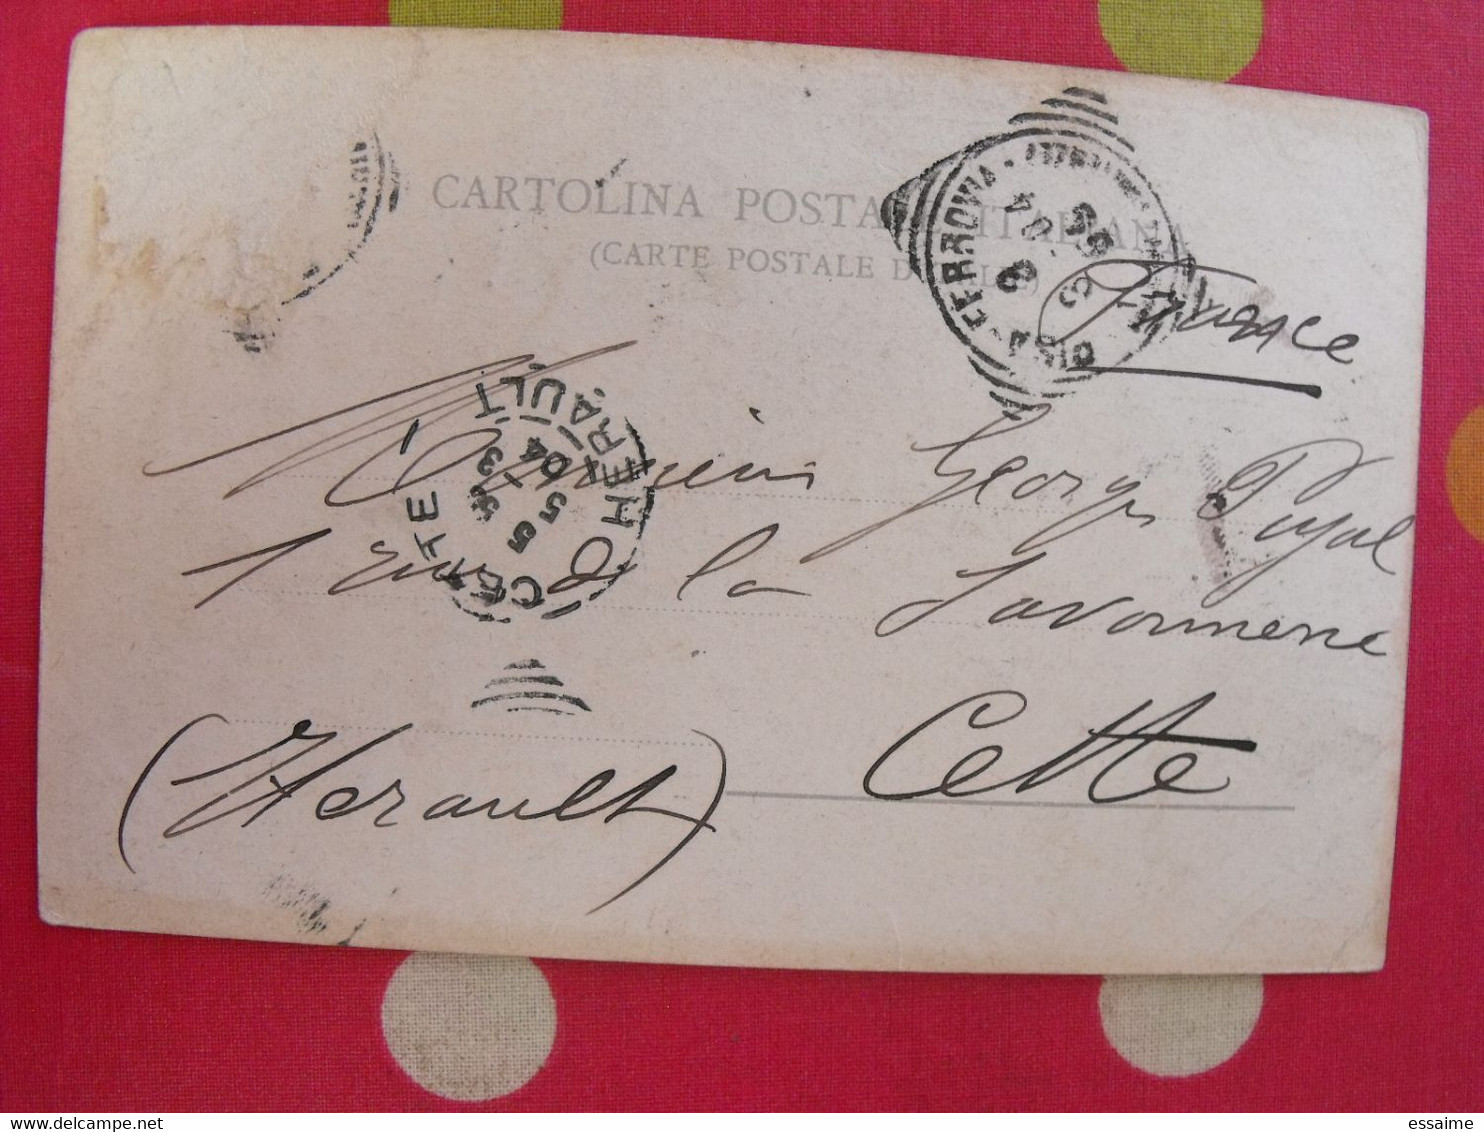 CARTOLINA POSTALE ITALIANA
(CARTE POSTALE D'ITALIE)
PISA-FERROVIA
3 5 04
France
Monsieur Georges Puyal
1 rue de la Savonnerie
Cette
(Hérault)
CETTE
HERAULT
5 5
04
essaime
delcampe.net